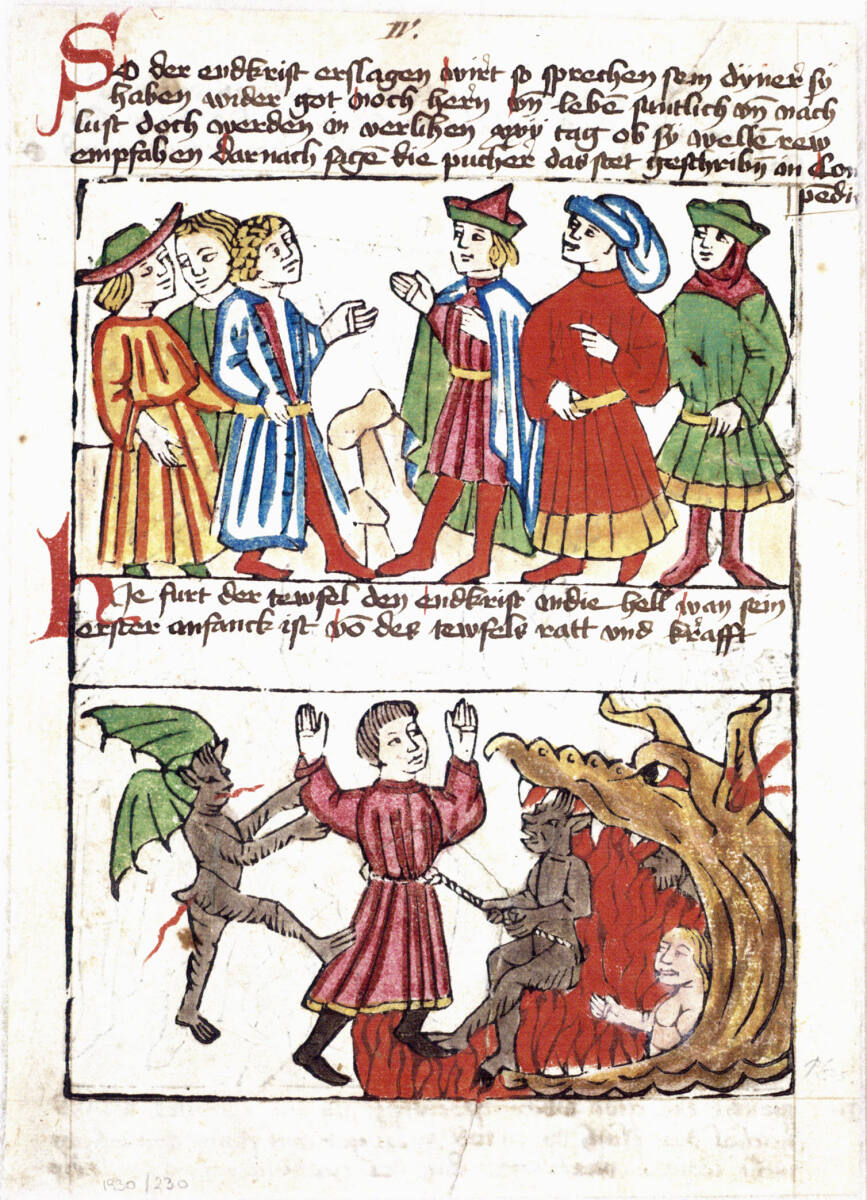 IV.
So der endkrist erslagen wirt so sprechen sein dyner sy
haben wider got noch hern vn̄ lebē suntlich vn̄ nach
lust doch werden in verlihen xxxv tag ob sy wellē rew
empfahen Darnach sagē die pucher das stet geschribn̄ in Com
pēdi
Hie furt der tewfel den endkrist in die hell wan sein
erster anfanck ist vō des tewfels ratt vnd krafft
1930/230